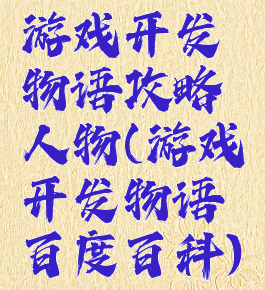 游戏开发
物语攻略
人物(游戏
开发物语
百度百科)